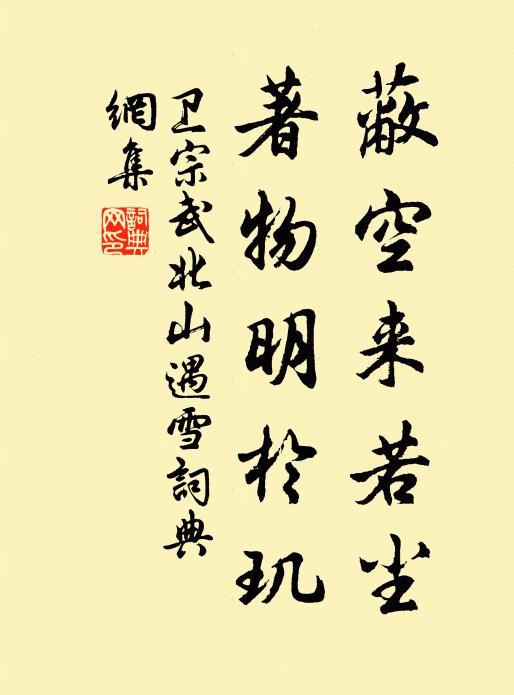 蔽空来若尘
著物明於玑
卫宗武北山遇雪詞典
網集
詞典
网印